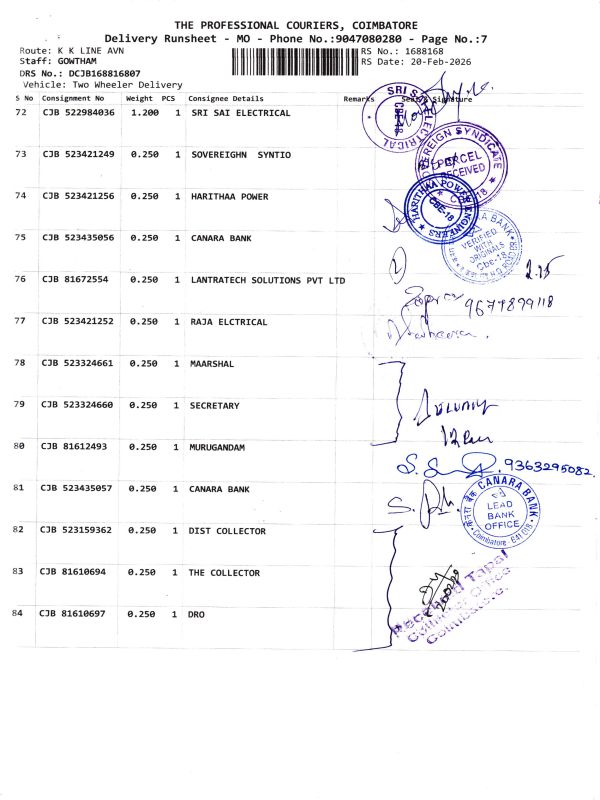 THE PROFESSIONAL COURIERS, COIMBATORE
Delivery Runsheet - MO - Phone No.:9047080280 - Page No.:7
Route: K K LINE AVN
RS No.: 1688168
Staff: GOWTHAM
RS Date: 20-Feb-2026
DRS No.: DCJB168816807
Vehicle: Two Wheeler Delivery
S No Consignment No Weight PCS Consignee Details Remarks Seal & Signature
72 CJB 522984036 1.200 1 SRI SAI ELECTRICAL
SRI SAI ELECTRICAL CBE-18
73 CJB 523421249 0.250 1 SOVEREIGHN SYNTIO
SOVEREIGN SYNDICATE RECEIVED CBE-18
74 CJB 523421256 0.250 1 HARITHAA POWER
HARITHAA POWER ENGINEERS CBE-18
75 CJB 523435056 0.250 1 CANARA BANK
CANARA BANK VERIFIED WITH ORIGINALS CBE-18
2.15
76 CJB 81672554 1 0.250 1 LANTRATECH SOLUTIONS PVT LTD
9677899118
77 CJB 523421252 0.250 1 RAJA ELCTRICAL
78 CJB 523324661 0.250 1 MAARSHAL
79 CJB 523324660 0.250 1 SECRETARY
80 CJB 81612493 0.250 1 MURUGANDAM
9363295082
81 CJB 523435057 0.250 1 CANARA BANK
केनरा बैंक CANARA BANK
LEAD BANK OFFICE
Coimbatore - 641 018
82 CJB 523159362 0.250 1 DIST COLLECTOR
83 CJB 81610694 0.250 1 THE COLLECTOR
Received Tapal
Office
Coimbatore
84 CJB 81610697 0.250 1 DRO